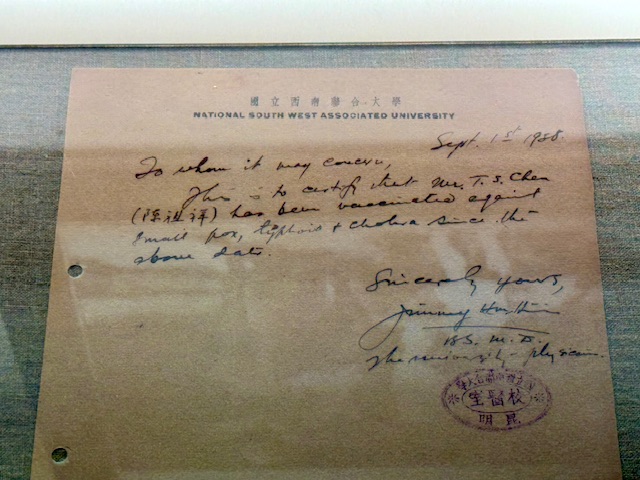 國立西南聯合大學
NATIONAL SOUTH WEST ASSOCIATED UNIVERSITY
Sept. 1st
To whom it may concern,
This is to certify that Mr. T. S. Chen
(陳祖祥) has been vaccinated against
small pox, typhoid & cholera since the
above date.
Sincerely yours,
Jimmy
BS. M.D.
The university physician
校醫室
昆明